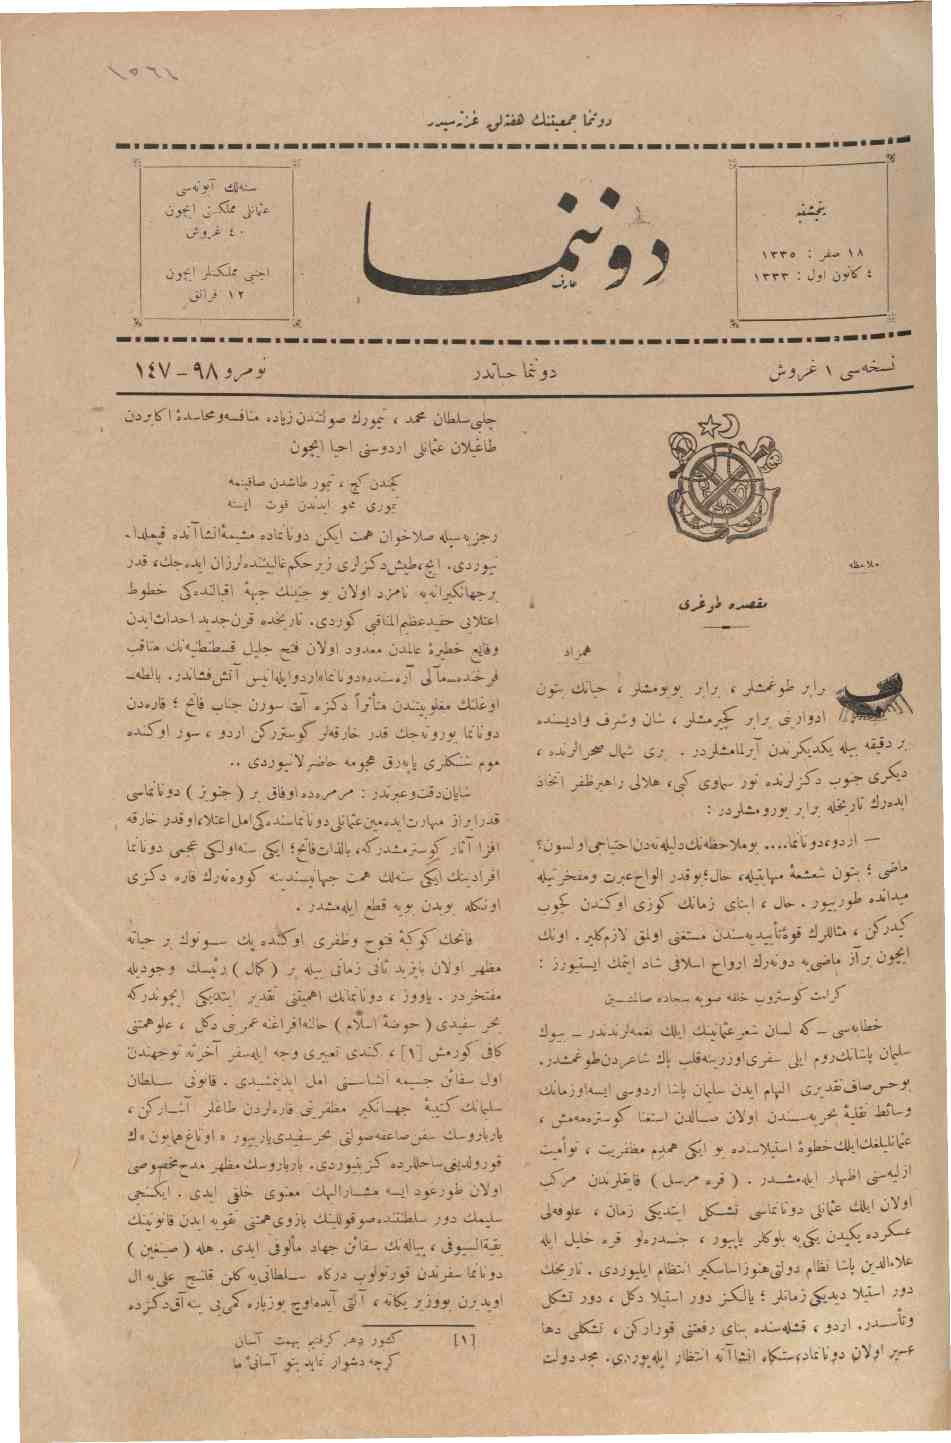 ١٥٦٤
دوننما جمعیتنك هفته‌لق غزته‌سیدر
پنجشنبه
١٨ صفر : ١٣٣٥
٤ كانون اول : ١٣٣٣
دوننما
عارف
سنه‌لك آبونه‌سی
عثمانلی مملكتی ایچون
٤٠ غروش
اجنبی مملكتلر ایچون
١٢ فرانق
نسخه‌سی ١ غروش
دوننما حیاتدر
نومرو ٩٨ – ١٤٧
ملاحظه
مقصده طوغری
همزاد
برابر طوغمشلر ، برابر بویومشلر ، حیاتك بتون
ادوارینی برابر كچیرمشلر ، شان وشرف وادیسنده
بر دقیقه بیله یكدیكرندن آیرلمامشلردر . بری شمال صحرالرنده ،
دیكری جنوب دكزلرنده نور سماوی كبی، هلالی راهبر ظفر اتخاذ
ایده‌رك تاریخله برابر یورومشلردر :
— اردو، دونانما.... بو ملاحظه‌نك دلیله نه‌دن احتیاجی اولسون؟
ماضی ؛ بتون شعشعهٔ مهابتیله، حال؛ بوقدر الواح عبرت ومفخرتیله
میدانده طورییور . حال ، ابنای زمانك كوزی اوكندن كچوب
كیدركن ، مثاللرك قوهٔ تأییدیه‌سندن مستغنی اولمق لازمكلیر. اونك
ایچون براز ماضی‌یه دونه‌رك ارواح اسلافی شاد ایتمك ایستیورز :
كرامت كوستروب خلقه صویه سجاده صالمشسین
خطابه‌سی – كه لسان شعر عثمانینك ایلك نغمه‌لرندندر – سیوك
سلیمان پاشانك روم ایلی سفری اوزرینه قلب پاك شاعردن طوغمشدر.
بو حس صاف تقدیری الهام ایدن سلیمان پاشا اردوسی ایسه اوزمانك
وسائط نقلیهٔ بحریه‌سندن اولان صالدن استغنا كوستره‌مه‌مش ،
عثمانلیلغك ایلك خطوهٔ استیلاسنده بو ایكی همدم مظفریت ، توأمیت
ازلیه‌سنی اظهار ایله‌مشدر . ( قره مرسل ) قایقلرندن مركب
اولان ایلك عثمانلی دونانماسی تشكل ایتدیكی زمان ، علوفه‌لی
عسكرده یكیدن یكی‌یه بلوكلر یاپیور ، جندره‌لو قره خلیل ایله
علاءالدین پاشا نظام دولتی هنوز اساسكیر انتظام ایلیوردی . تاریخك
دور استیلا دیدیكی زمانلر ؛ یالكز دور استیلا دكل ، دور تشكل
وتأسسدر. اردو ، قشله‌سنده بنای رفعتنی قوراركن ، تشكلی دها
عسیر اولان دونانماده دستكاه انشاآنه انتظار ایله‌یوردی. مجدد دولت
چلبی سلطان محمد ، تیمورك صولتندن زیاده منافسه ومحاسدهٔ اكابردن
طاغیلان عثمانلی اردوسنی احیا ایچون
كچندن كچ ، تیمور طاشدن صاقینمه
تیموری محو ایدندن قوت ایسته
رجزیه‌سیله صلاخوان همت ایكن دونانماده مشیمهٔ انشاآنده قیملدا-
نیوردی. ایچ، طیش دكزلری زیر حكم غالبیتنده لرزان ایده‌جك، قدر
بر جهانكیرانه‌یه نامزد اولان بو جنینك جبههٔ اقبالنده‌كی خطوط
اعتلایی حفید عظیم المناقبی كوردی. تاریخده قرن جدید احداث ایدن
وقایع خطیرهٔ عالمدن معدود اولان فتح جلیل قسطنطنیه‌نك مناقب
فرخنده-مآلی آره‌سنده دونانما، اردو ایله انیس آتش فشاندر. بالطه-
اوغلنك مغلوبیتندن متأثراً دكزه آت سورن جناب فاتح ؛ قاره‌دن
دونانما یوروته‌جك قدر خارقه‌لر كوستركن اردو ، سور اوكنده
موم شنلكلری یاپه‌رق هجومه حاضرلانیوردی ..
شایان دقت وعبرتدر : مرمره‌ده اوفاق بر ( جنویز ) دونانماسی
قدر ابراز مهارت ایده‌مین عثمانلی دونانماسنده‌كی امل اعتلاء، او قدر خارقه
افزا آثار كوسترمشدركه، بالذات فاتح؛ ایكی سنه اولكی عجمی دونانما
افرادینك ایكی سنه‌لك همت جهانپسندینه كووه‌نه‌رك قاره دكزی
اونكله بویدن بویه قطع ایله‌مشدر .
فاتحك كوكبهٔ فتوح وظفری اوكنده پك سونوك بر حیاته
مظهر اولان بایزید ثانی زمانی بیله بر ( كمال ) رئیسك وجودیله
مفتخردر . یاووز ، دونانمانك اهمیتنی تقدیر ایتدیكی ایچوندركه
بحر سفیدی ( حوضهٔ اسلام ) حالنه افراغنه عمرینی دكل ، علو همتنی
كافی كورمش [١] ، كندی تعبیری وجه ایله سفر آخرته توجهندن
اول سفائن جسیمه انشاسنی امل ایدینمشیدی . قانونی سلطان
سلیمانك كتیبهٔ جهانكیر مظفرتی قاره‌لردن طاغلر آشاركن ،
بارباروسك سفن صاعقه صولتی بحر سفیدی یارییور « اوتاغ همایون » ك
قورولدیغی ساحللرده كزینیوردی. بارباروسك مظهر مدح مخصوصی
اولان طورغود ایسه مشارالیهك معنوی خلفی ایدی . ایكنجی
سلیمك دور سلطنتنده صوقوللینك بازوی همتنی تقویه ایدن قانونینك
بقیة السیوفی ، پیاله‌نك سفائن جهاد مألوفی ایدی . هله ( صینغین )
دونانما سفرندن قورتولوب دركاه سلطانی‌یه كلن قلیج علی‌یه ال
اویدیرن یووزبر یكانه ، آلتی آیده اوچ یوزپاره كمی‌یی ینه آق دكزده
[١] كشور دهر كرفتیم بهمت آسان
كرچه دشوار نماید بتو آسانئ ما